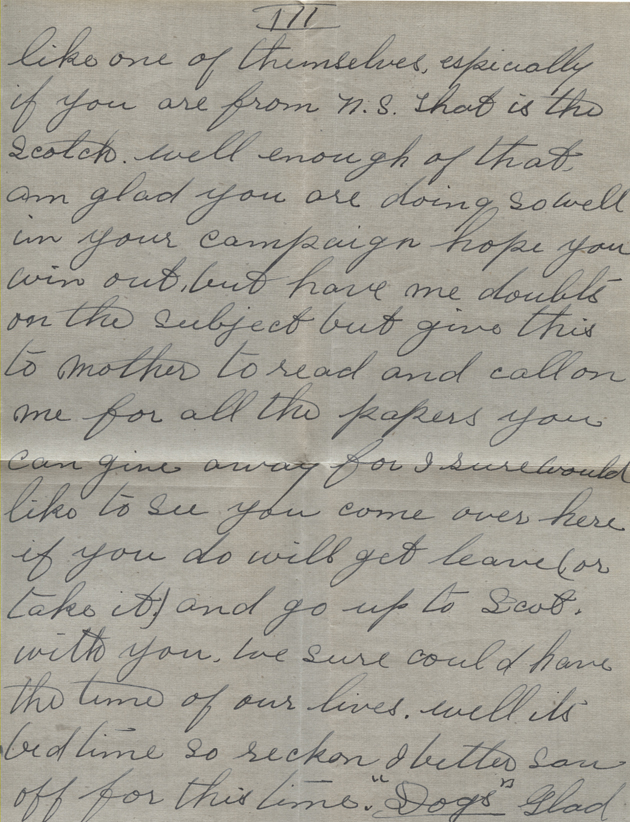 III
like one of themselves, espicially
if you are from N.S. that is the
Scotch. well enough of that.
am glad you are doing so well
in your campaign hope you
win out, but have me doubts
on the subject but give this
to mother to read and call on
me for all the papers you
can give away for I sure would
like to see you come over here
if you do will get leave (or
take it) and go up to Scot.
with you. we sure could have
the time of our lives. well its
bedtime so reckon I better saw
off for this time. "Dogs" Glad